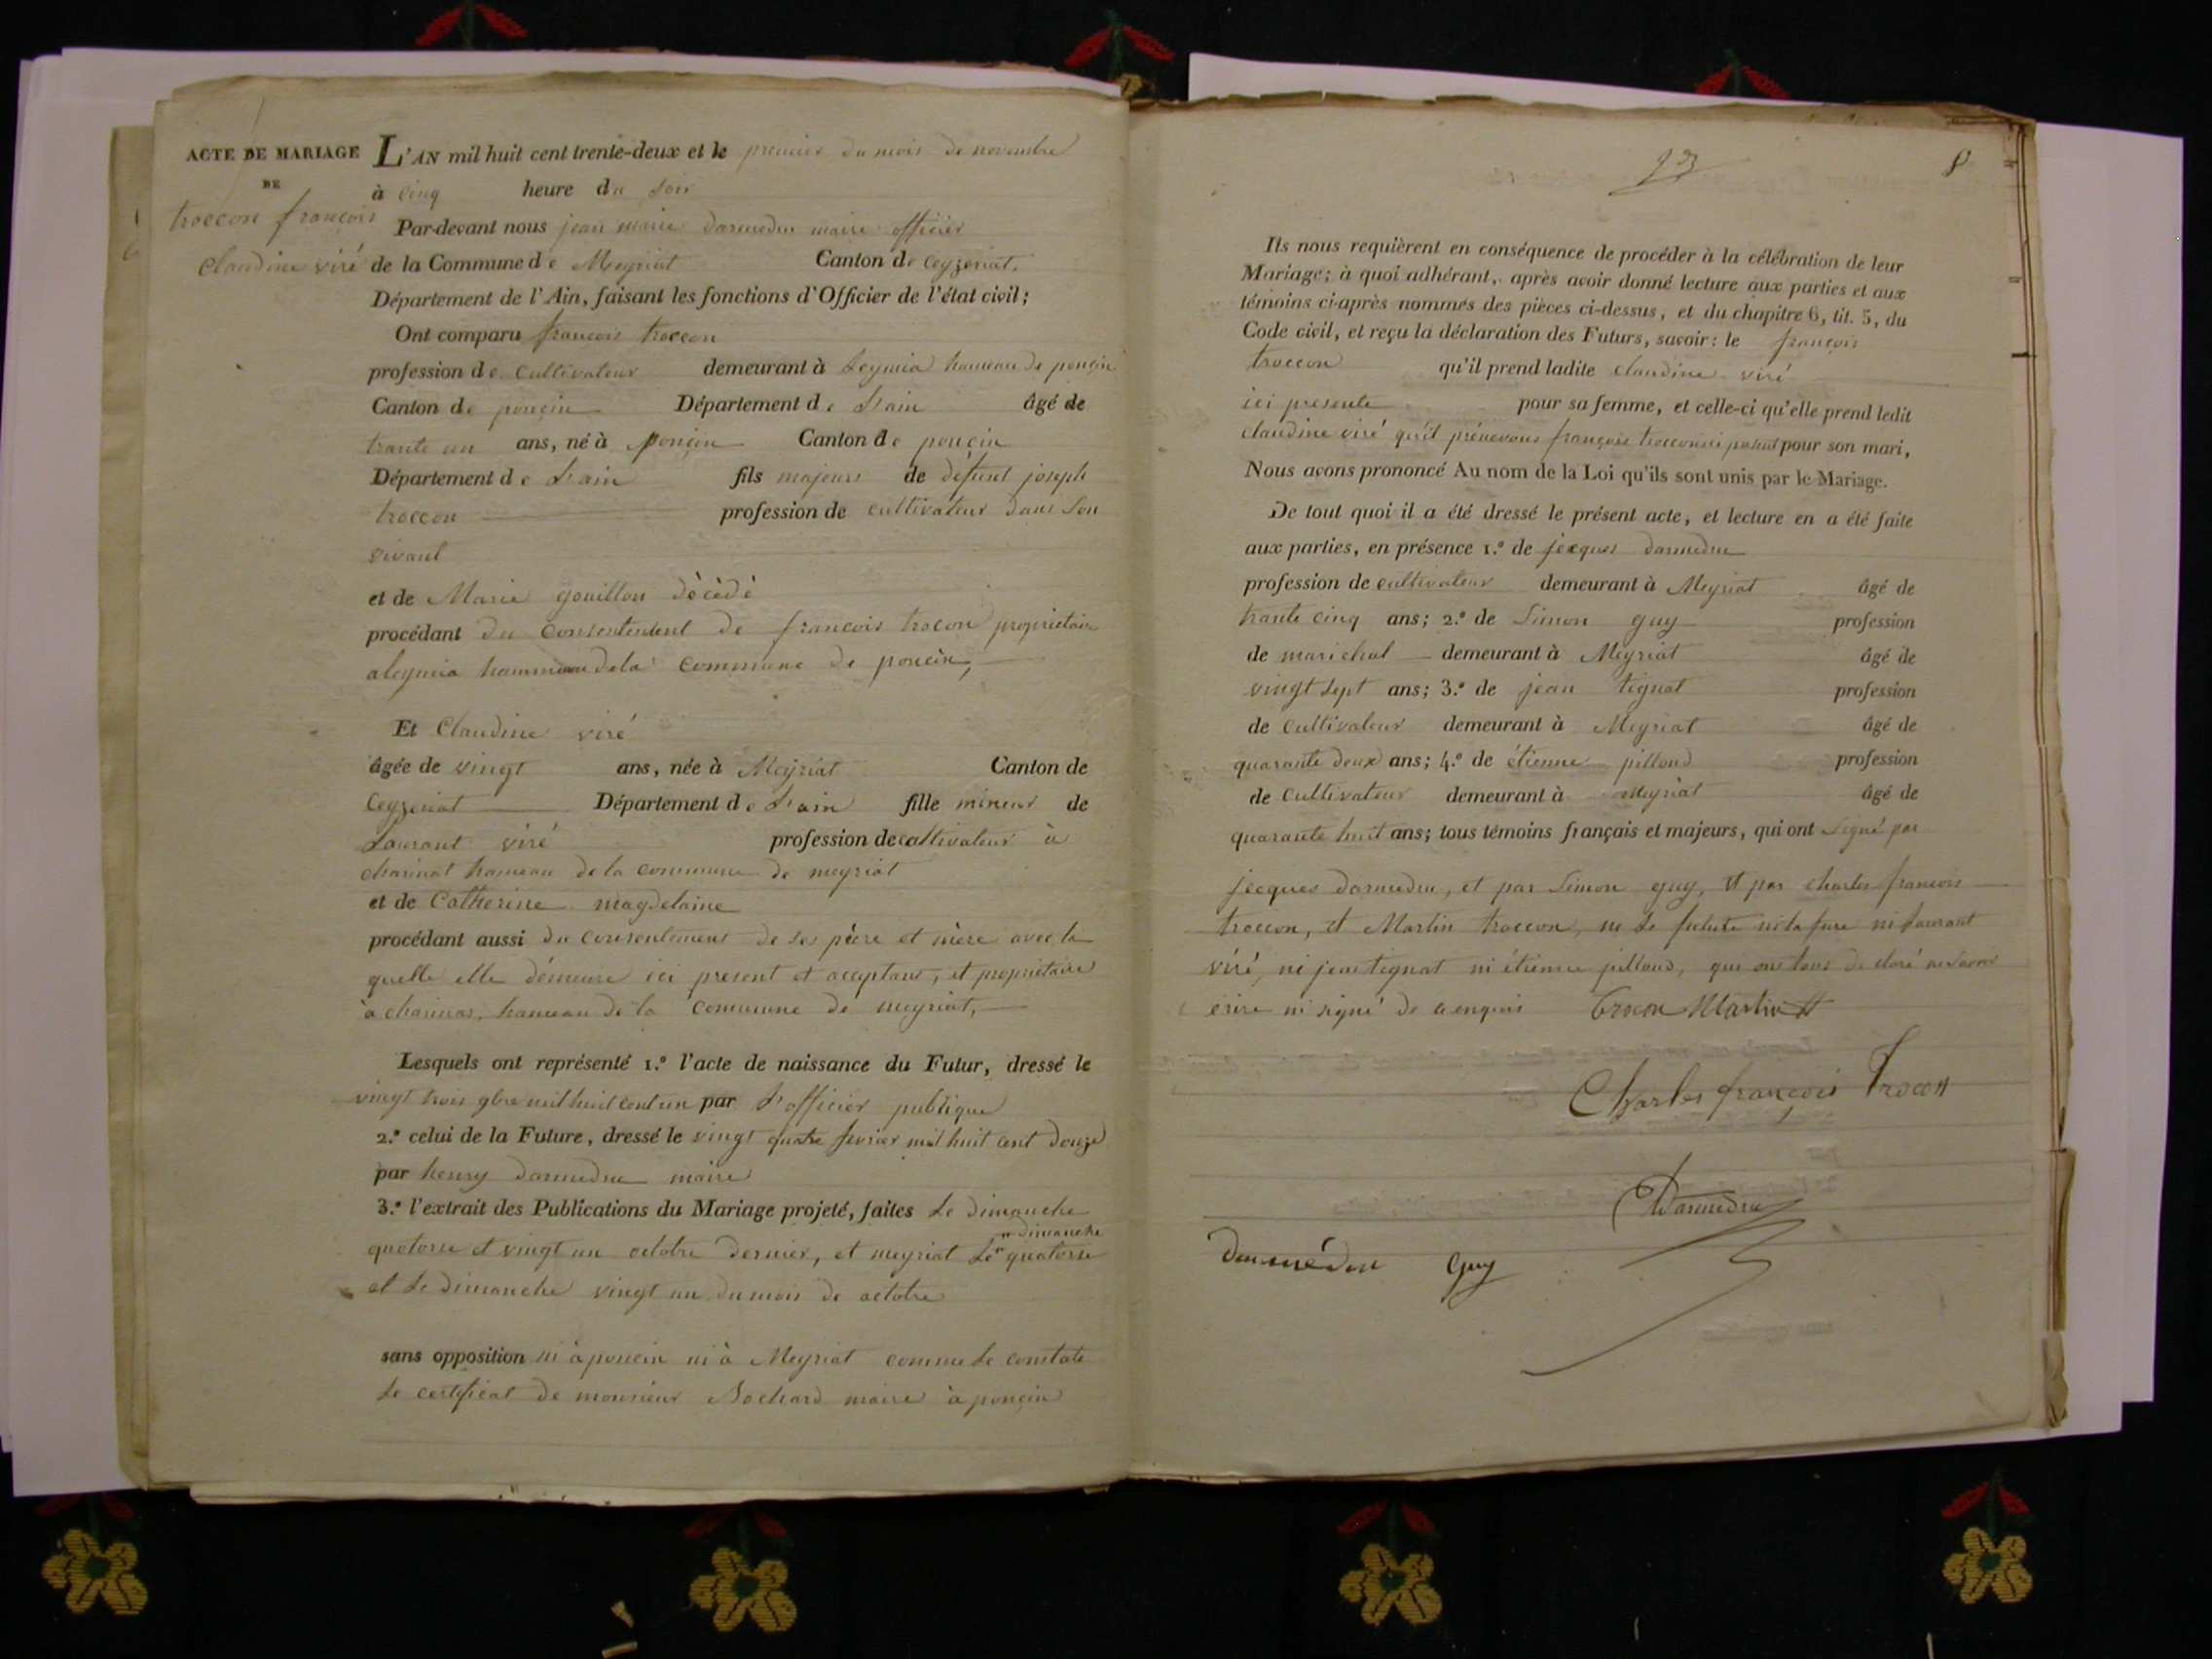 ACTE DE MARIAGE
DE
troccon françois
Claudine viré
L'AN mil huit cent trente-deux et le premier du mois de novembre
à cinq heure du soir
Par-devant nous jean marie darmedru maire officier
de la Commune de Meyriat Canton de Ceyzeriat.
Département de l'Ain, faisant les fonctions d'Officier de l'état civil;
Ont comparu francois troccon
profession de Cultivateur demeurant à Leymia hameau de ponçin
Canton de ponçin Département de L'ain âgé de
trante un ans, né à ponçin Canton de ponçin
Département de L'ain fils majeur de défunt joseph
troccon profession de cultivateur dans Son
vivant
et de Marie gouillon décédé
procédant du Consentement de françois trocon propriétaire
aleymia hammeau dela Commune de poncin,
Et Claudine viré
âgée de vingt ans, née à Meyriat Canton de
Ceyzeriat Département de L'ain fille mineur de
Laurant viré profession de cultivateur à
charinat hameau de la commune de meyriat
et de Catherine magdelaine
procédant aussi du consentement de ses père et mère avec la
quelle elle démeure ici present et acceptant, et propriétaire
à charinas, hameau de la commune de meyriat,
Lesquels ont représenté 1.º l'acte de naissance du Futur, dressé le
vingt trois gbre mil huit cent un par L'officier publique
2.º celui de la Future, dressé le vingt quatre fevrier mil huit cent douze
par henry darmedru maire
3.º l'extrait des Publications du Mariage projeté, faites Le dimanche
quatorse et vingt un octobre dernier, et meyriat Le " dimanche quatorse
et Le dimanche vingt un du mois de octobre
sans opposition ni à poncin ni à Meyriat comme Le constate
Le certificat de monsieur Bochard maire à ponçin
23
8
Ils nous requièrent en conséquence de procéder à la célébration de leur
Mariage; à quoi adhérant, après avoir donné lecture aux parties et aux
témoins ci-après nommés des pièces ci-dessus, et du chapitre 6, tit. 5, du
Code civil, et reçu la déclaration des Futurs, savoir: le françois
troccon qu'il prend ladite claudine viré
ici presente pour sa femme, et celle-ci qu'elle prend ledit
claudine viré qu'il françois troccon ici pour son mari,
Nous avons prononcé Au nom de la Loi qu'ils sont unis par le Mariage.
De tout quoi il a été dressé le présent acte, et lecture en a été faite
aux parties, en présence 1.º de jacques darmedru
profession de cultivateur demeurant à Meyriat âgé de
trante cinq ans; 2.º de Simon guy profession
de marichal demeurant à Meyriat âgé de
vingt sept ans; 3.º de jean tignat profession
de Cultivateur demeurant à Meyriat âgé de
quarante deux ans; 4.º de étienne pilloud profession
de Cultivateur demeurant à meyriat âgé de
quarante huit ans; tous témoins français et majeurs, qui ont Signé par
jacques darmedru, et par Simon guy, et par charles francois
troccon, et Martin troccon, ne Le ni la ni Laurant
viré, ni jean tignat ni étienne pilloud, qui ont tous de claré ne Savoir
érire ni signé de a enquis trocon Martin
Charles françois Trocon
Darmedru
Darmédru Guy